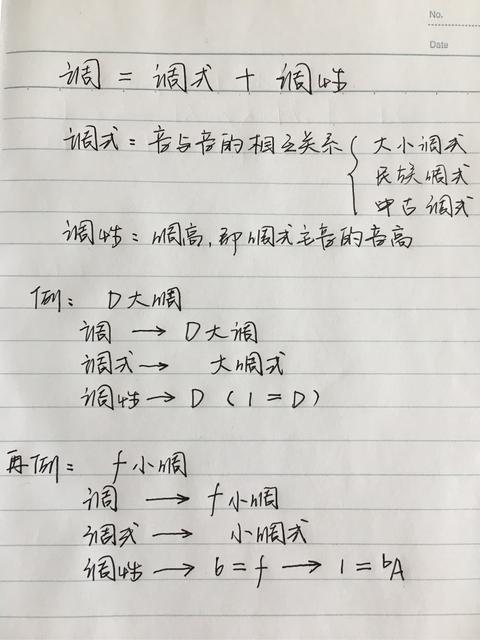 No.
Date
调 = 调式 + 调性
调式：音与音的相互关系{ 大小调式
民族调式
中古调式
调性：调高，即调式主音的音高
例： D大调
调 → D大调
调式→ 大调式
调性→ D （1=D）
再例： f小调
调 → f小调
调式→ 小调式
调性→ 6=f → 1=bA